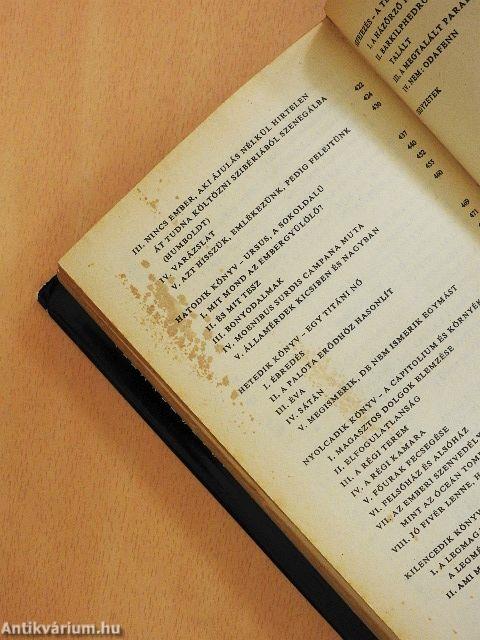 III. NINCS EMBER, AKI ÁJULÁS NÉLKÜL HIRTELEN
ÁT TUDNA KÖLTÖZNI SZIBÉRIÁBÓL SZENEGÁLBA
(HUMBOLDT)
IV. VARÁZSLAT
V. AZT HISSZÜK, EMLÉKEZÜNK, PEDIG FELEJTÜNK
HATODIK KÖNYV – URSUS, A SOKOLDALÚ
I. MIT MOND AZ EMBERGYŰLÖLŐ?
II. ÉS MIT TESZ
III. BONYODALMAK
IV. MOENIBUS SURDIS CAMPANA MUTA
V. ÁLLAMÉRDEK KICSIBEN ÉS NAGYBAN
HETEDIK KÖNYV – EGY TITÁNI NŐ
I. ÉBREDÉS
II. A PALOTA ERDŐHÖZ HASONLÍT
III. ÉVA
IV. SÁTÁN
V. MEGISMERIK, DE NEM ISMERIK EGYMÁST
NYOLCADIK KÖNYV – A CAPITOLIUM ÉS KÖRNYÉK
I. MAGASZTOS DOLGOK ELEMZÉSE
II. ELFOGULATLANSÁG
III. A RÉGI TEREM
IV. A RÉGI KAMARA
V. FŐURAK FECSEGÉSE
VI. FELSŐHÁZ ÉS ALSÓHÁZ
VII. AZ EMBERI SZENVEDÉLY
MINT AZ ÓCEÁN TOM
VIII. JÓ FIVÉR LENNE, H
KILENCEDIK KÖNYV
I. A LEGMAGA
A LEGMÉ
II. AMI M
422
424
430
437
440
452
455
460
469
471
I. A HÁZŐRZŐ
II. BARKILPHEDRO
TALÁLT
III. A MEGTALÁLT PARA
IV. NEM: ODAFENN
JEGYZETEK
Antikvárium.hu